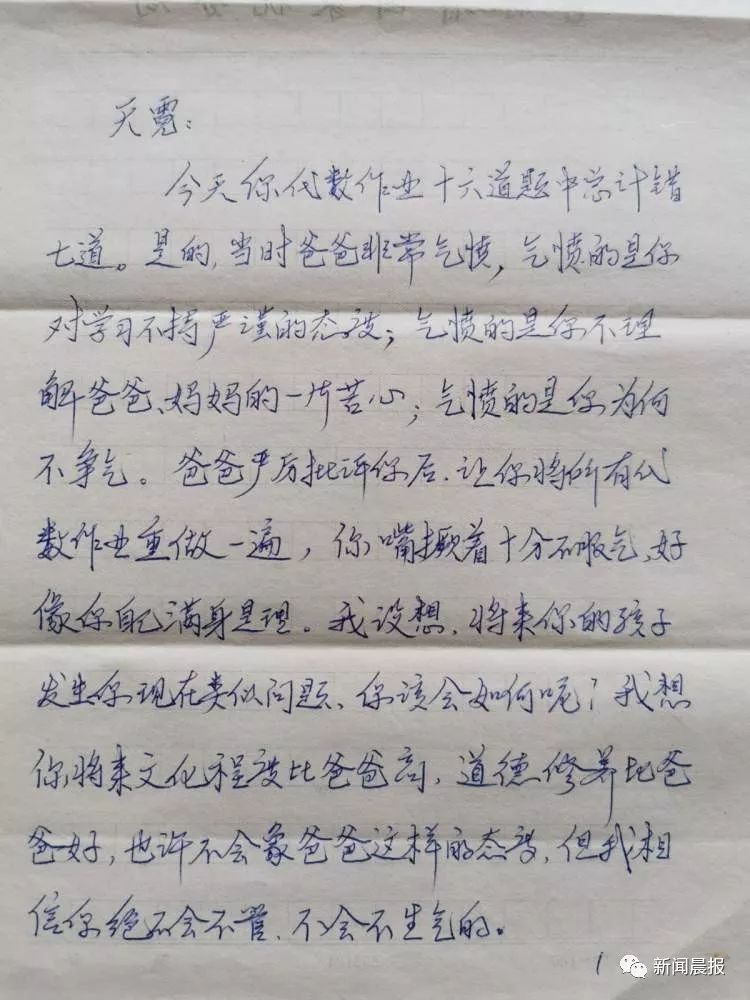 天霓：
今天你代数作业十六道题中总计错
七道。是的，当时爸爸非常气愤，气愤的是你
对学习不持严谨的态度；气愤的是你不理
解爸爸、妈妈的一片苦心；气愤的是你为何
不争气。爸爸严厉批评你后，让你将所有代
数作业重做一遍，你嘴撅着十分不服气，好
像你自己满身是理。我设想，将来你的孩子
发生你现在类似问题、你该会如何呢？我想
你将来文化程度比爸爸高，道德修养比爸
爸好，也许不会象爸爸这样的态度，但我相
信你绝不会不管、不会不生气的。
1
新闻晨报